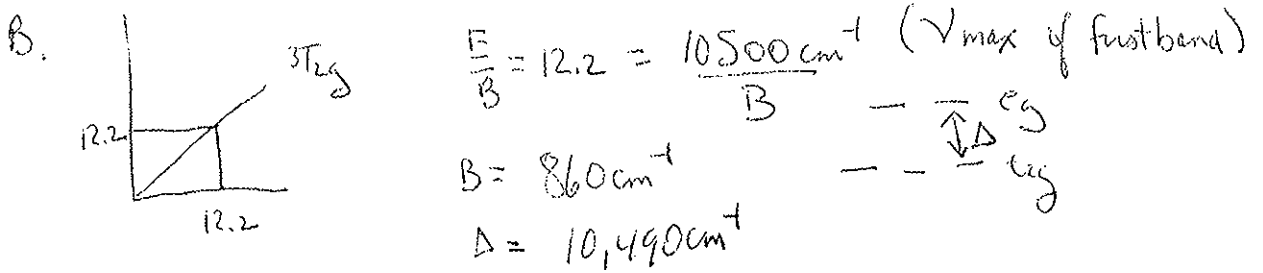 B.
³T₂g
12.2
12.2
E/B = 12.2 = 10500 cm⁻¹/B (νmax of first band)
eg
Δ
t₂g
B = 860 cm⁻¹
Δ = 10,490 cm⁻¹